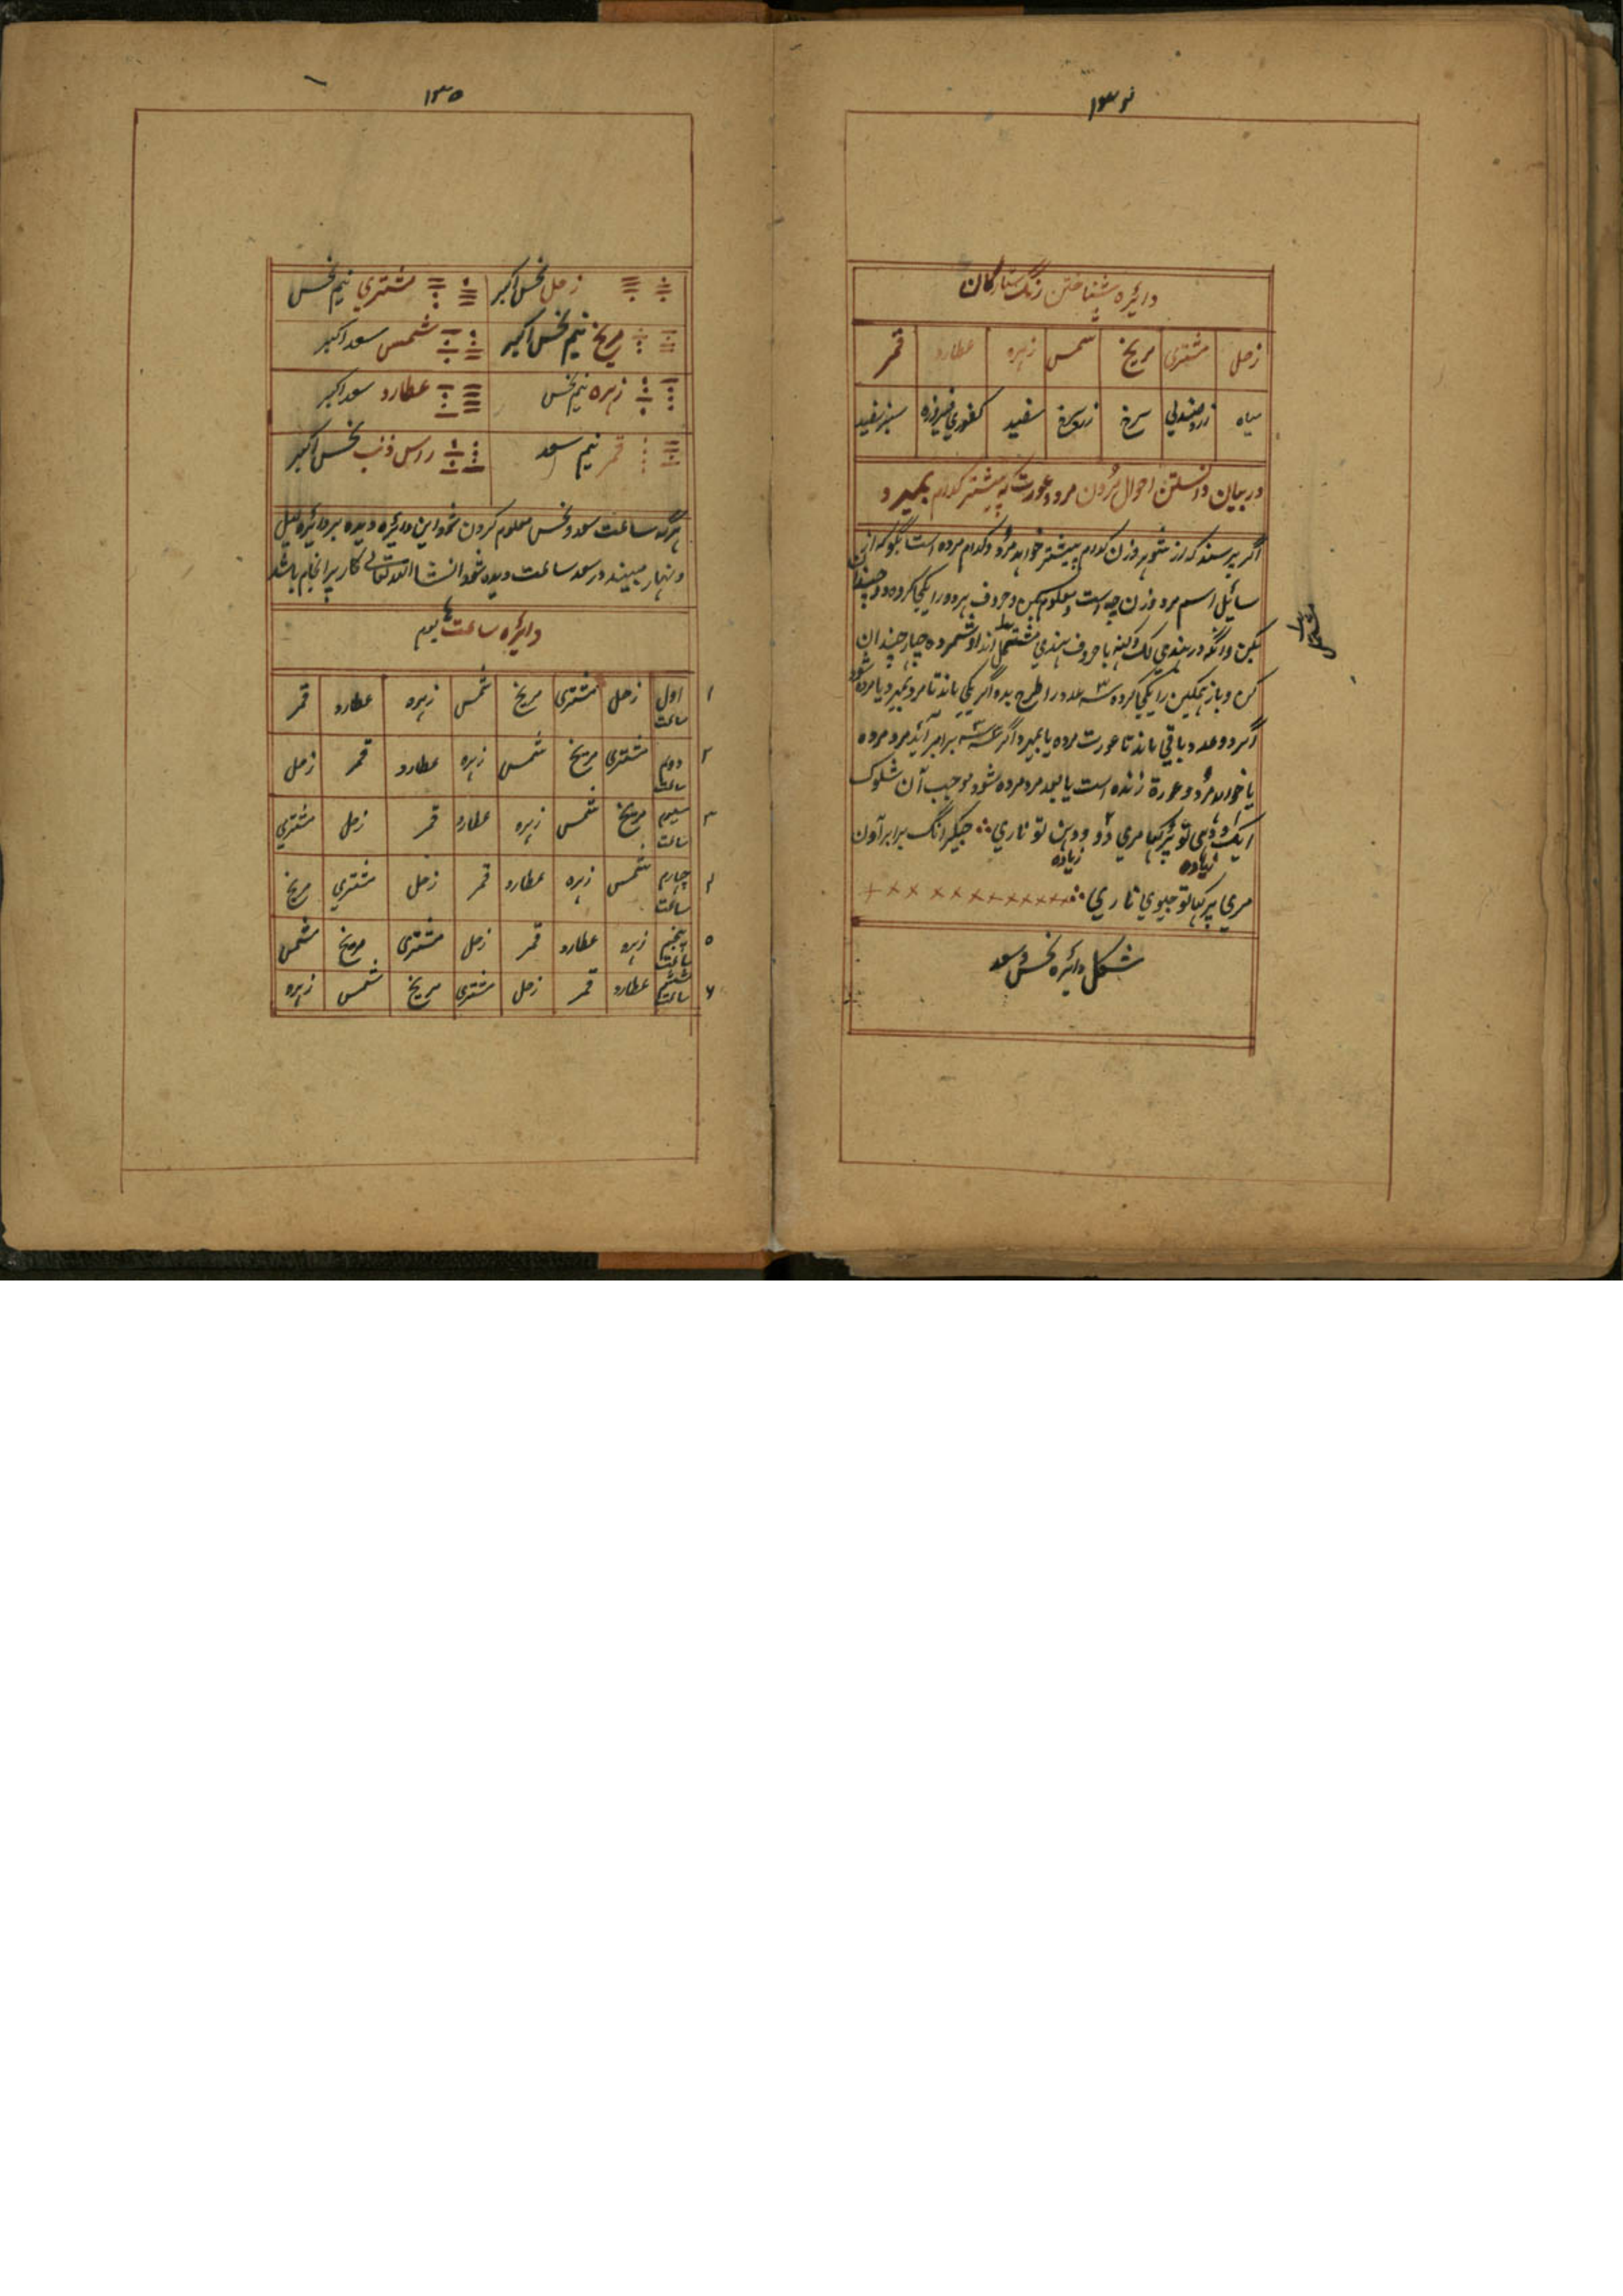 ۱۳۴
دائره شناختن رنگ ستارگان
زحل مشتری مریخ شمس زهره عطارد قمر
سیاه زرد صندلي سرخ زرد سرخ سفید کفوري فیروزه سبز سفید
در بیان دانستن احوال مُردن مرد و عورت که پیشتر کدام بمیرد
اگر پرسند که از شوهر و زن کدام پیشتر خواهد مرد و کدام مرده است بگو که از
سائیل اسم مرد و زن چه است معلوم کن و حروف هر دو را یکجا کرده دو چندان
بکن و آنگه در هندي با حروف هندي شمرده چهار چندان
کن و باز همگین را یکجا کرده سه عدد را طرح بده اگر یکي ماند تا مرد بمیرد یا مرده شود
اگر دو عدد باقي ماند تا عورت مرده یا بمیرد و اگر سه برابر آید مرد مرده
یا خواهد مرد و عورة زنده است یا بعد مرد مرده شود موجب آن شلوک
ایک تو پرکھا مري دو تو ناري جیکر انک برابر آون
زیاده زیاده
مري پرکھا تو جیوي ناري
شکل دائره نحس و سعد
۱۳۵
زحل نحس اکبر مشتري نیم نحس
مریخ نیم نحس اکبر شمس سعد اکبر
زهره نیم نحس عطارد سعد اکبر
قمر نیم سعد راس ذنب نحس اکبر
هرگه ساعت سعد و نحس معلوم کردن شود این دائیره دیده بر دائیره لیل
و نهار مبیند در سعد ساعت دیده شود انشا الله تعالے کار سرانجام باشد
دائیره ساعت ها یوم
۱ اول ساعت زحل مشتری مریخ شمس زهره عطارد قمر
۲ دوم ساعت مشتری مریخ شمس زهره عطارد قمر زحل
۳ سیوم ساعت مریخ شمس زهره عطارد قمر زحل مشتري
۴ چهارم ساعت شمس زهره عطارد قمر زحل مشتري مریخ
۵ پنجم ساعت زهره عطارد قمر زحل مشتری مریخ شمس
۶ ششم ساعت عطارد قمر زحل مشتری مریخ شمس زهره